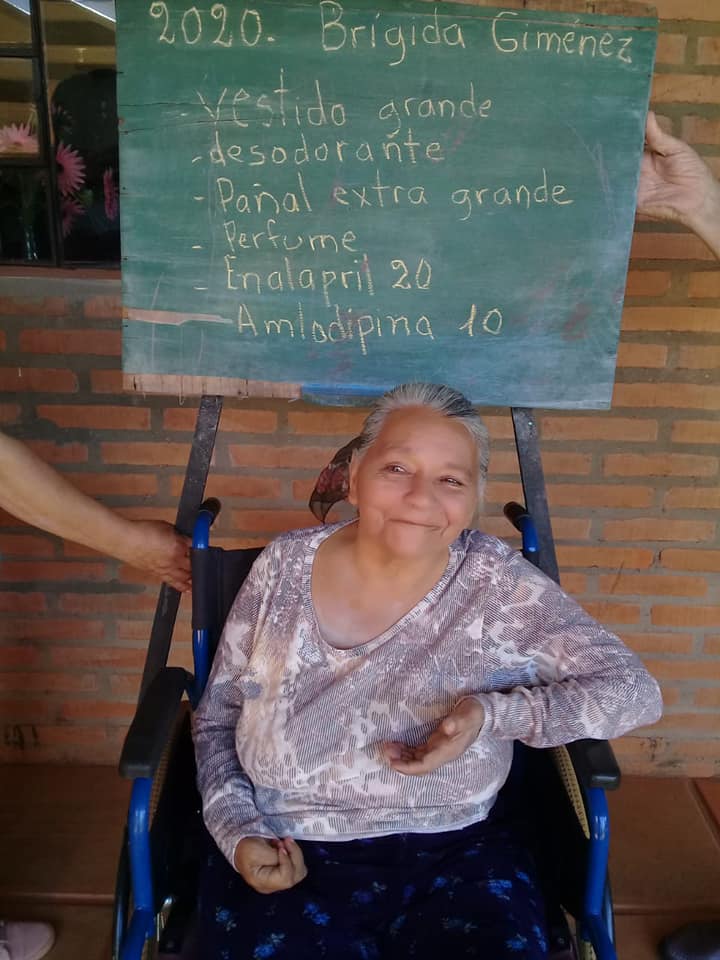 2020. Brígida Giménez
- vestido grande
- desodorante
- Pañal extra grande
- Perfume
- Enalapril 20
Amlodipina 10